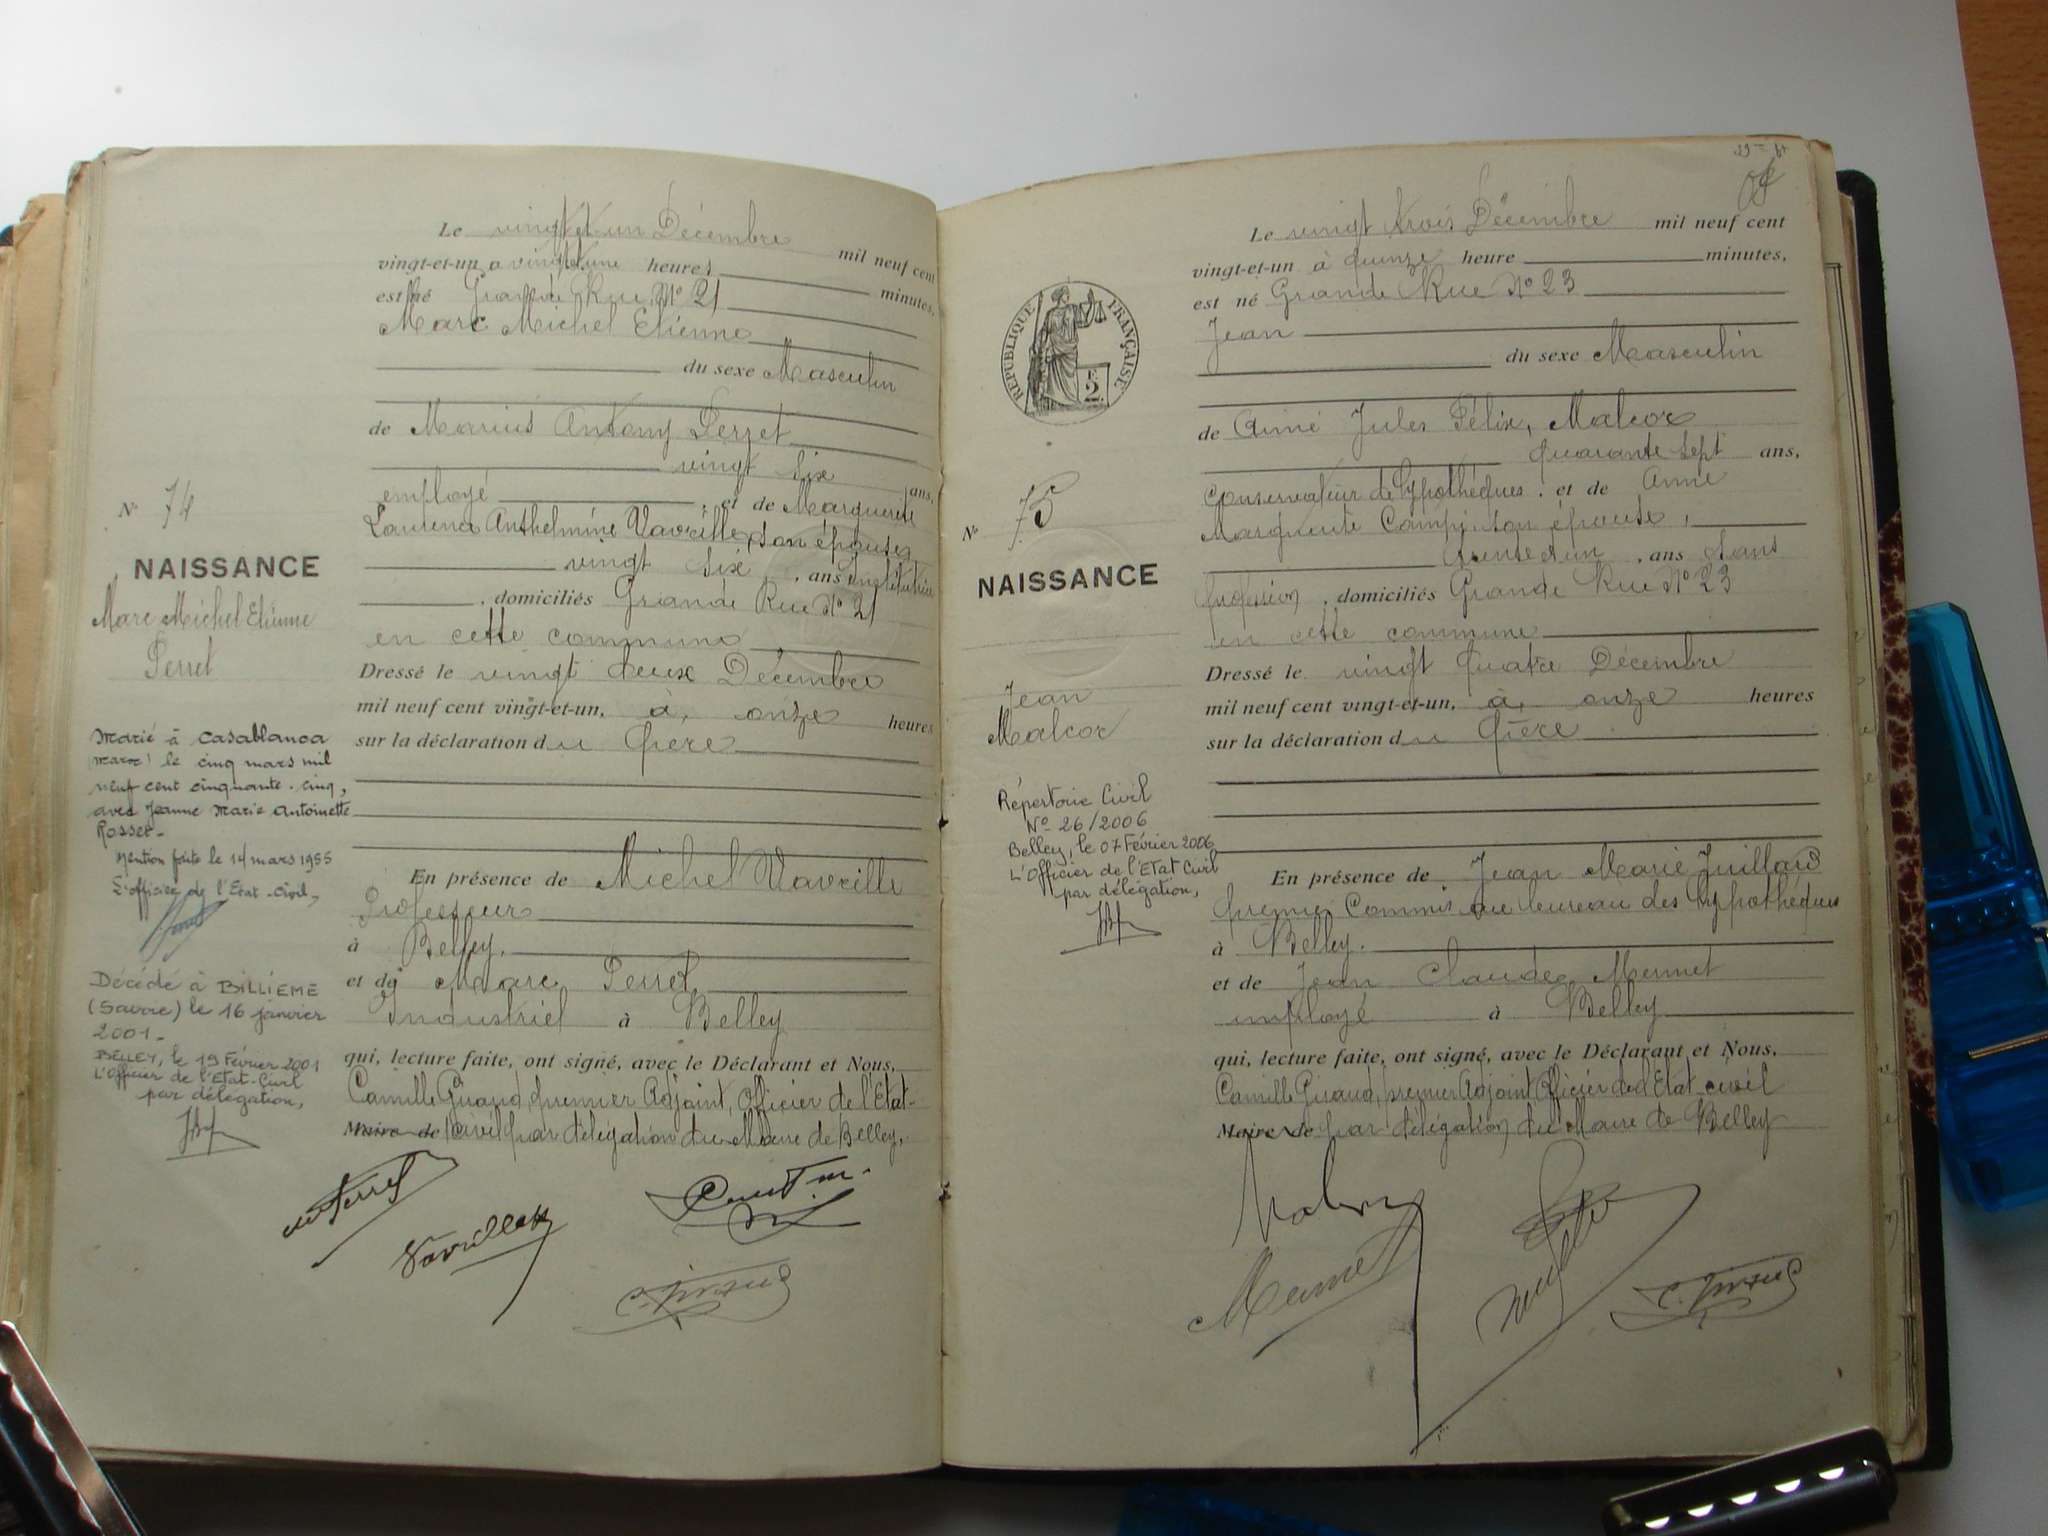 Le vingt et un Décembre mil neuf cent
vingt-et-un à vingt une heures minutes,
est né Grande Rue N° 21
Marc Michel Etienne
du sexe Masculin
de Marius Antony Perret
vingt six ans,
employé, et de Marguerite
Laurence Anthelmine Vavrille, son épouse,
vingt six, ans institutrice
, domiciliés Grande Rue N° 21
en cette commune
Dressé le vingt deux Décembre
mil neuf cent vingt-et-un, à, onze heures
sur la déclaration du Père
En présence de Michel Vavrille
Professeur
à Belley,
et de Marc Perret,
Industriel à Belley
qui, lecture faite, ont signé, avec le Déclarant et Nous,
Camille Giraud, premier Adjoint, Officier de l'Etat-
Maire de Civil par délégation du Maire de Belley,
N° 74
NAISSANCE
Marc Michel Etienne
Perret
Marié à Casablanca
(Maroc) le cinq mars mil
neuf cent cinquante-cinq,
avec Jeanne Marie Antoinette
Rosset-
Mention faite le 14 mars 1955
L'officier de l'Etat-Civil,
Décédé à BILLIEME
(Savoie) le 16 janvier
2001-
BELLEY, le 19 Février 2001
L'Officier de l'Etat-Civil
par délégation,
Perret
Vavrille
C. Giraud
Le vingt trois Décembre mil neuf cent
vingt-et-un à quinze heure minutes,
est né Grande Rue N° 23
Jean
du sexe Masculin
de Aimé Jules Félix, Malcor
quarante sept ans,
Conservateur des hypothèques, et de Anne
Marguerite son épouse,
trente et un, ans sans
profession, domiciliés Grande Rue N° 23
en cette commune
Dressé le vingt quatre Décembre
mil neuf cent vingt-et-un, à, onze heures
sur la déclaration du Père
En présence de Jean Marie Juillard
premier Commis au bureau des hypothèques
à Belley.
et de Jean Claude Mermet
employé à Belley
qui, lecture faite, ont signé, avec le Déclarant et Nous,
Camille Giraud, premier Adjoint Officier de l'Etat-civil
Maire de par délégation du Maire de Belley
RÉPUBLIQUE FRANÇAISE
2
N° 75
NAISSANCE
Jean
Malcor
Répertoire Civil
N° 26/2006
Belley, le 07 Février 2006
L'Officier de l'Etat Civil
par délégation,
Malcor
Mermet
C. Giraud